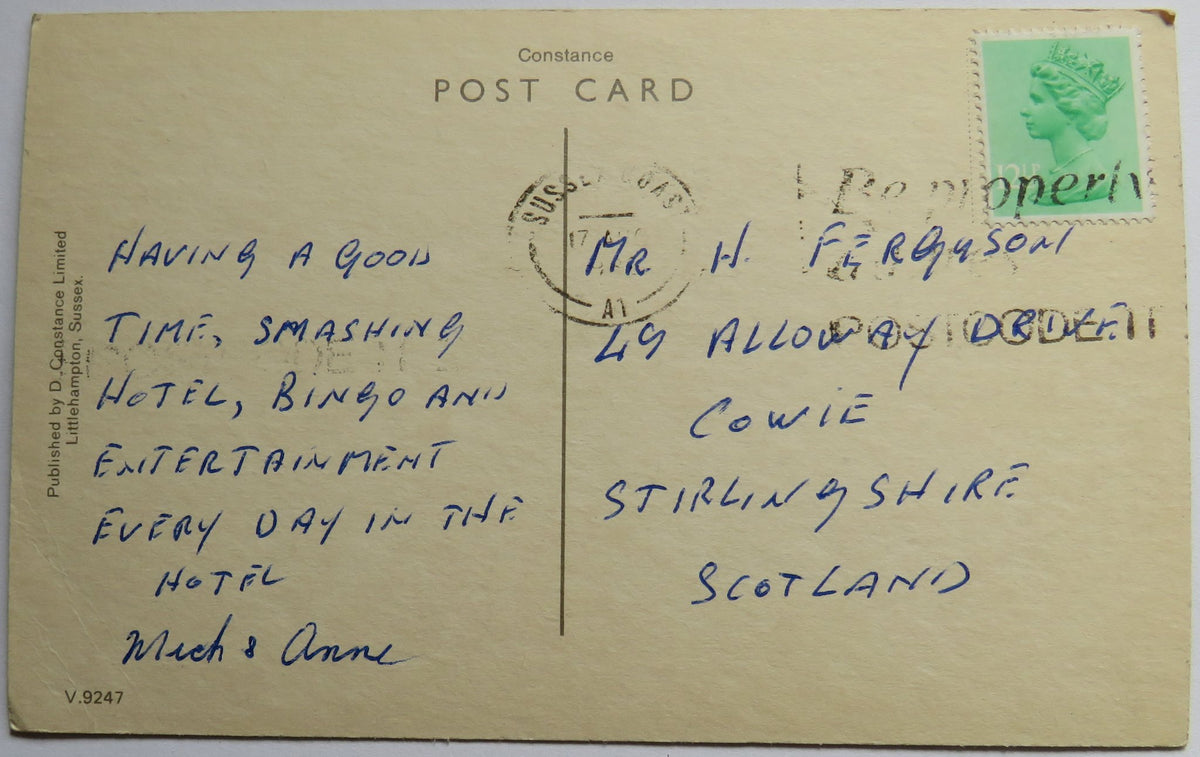 Constance
POST CARD
Published by D. Constance Limited
Littlehampton, Sussex.
HAVING A GOOD
TIME, SMASHING
HOTEL, BINGO AND
ENTERTAINMENT
EVERY DAY IN THE
HOTEL
Mick & Anne
V.9247
SUSSEX COAST
17
A1
Be properly
POSTCODE IT
12½P
MR H. FERGUSON
49 ALLOWAY DRIVE
COWIE
STIRLINGSHIRE
SCOTLAND